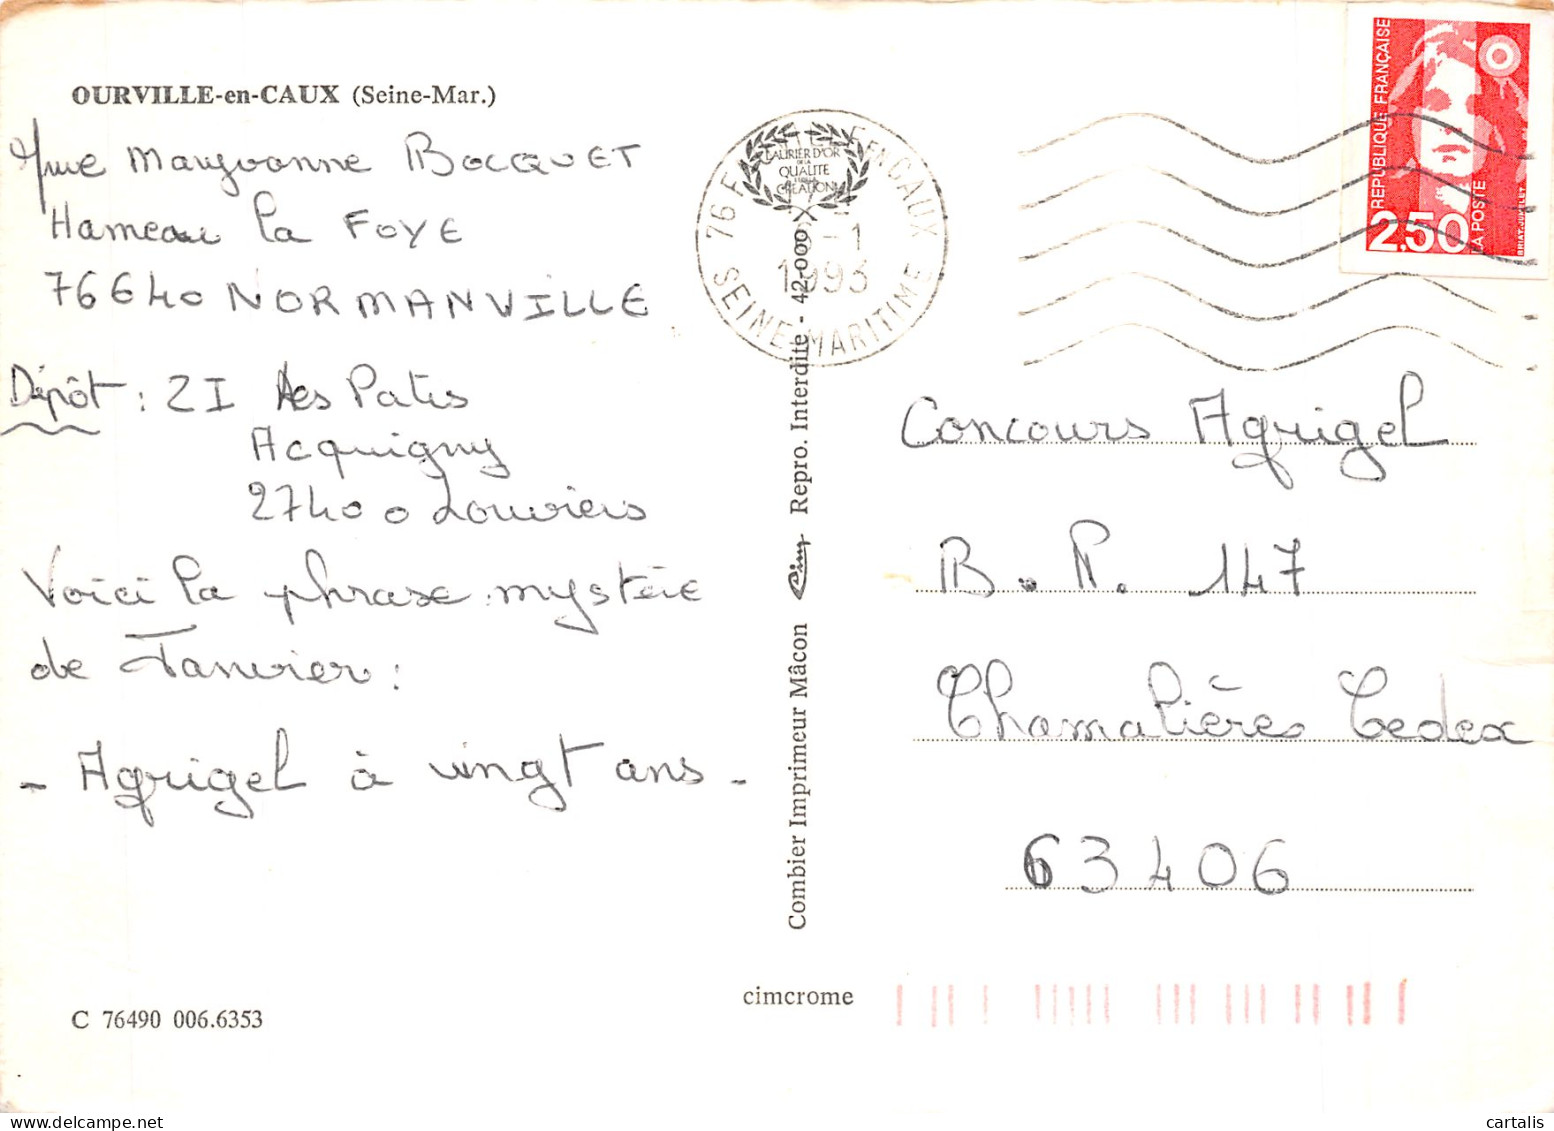 OURVILLE-en-CAUX (Seine-Mar.)
Mme Maryvonne BOCQUET
Hameau La FOYE
76640 NORMANVILLE
Dépôt : ZI des Patis
Acquigny
27400 Louviers
Voici la phrase mystère
de Janvier :
- Agrigel à vingt ans -
C 76490 006.6353
LAURIER D'OR
DE LA
QUALITE
CREATION
EN CAUX
-1
1993
SEINE-MARITIME
Combier Imprimeur Mâcon Cim Repro. Interdite - 42-000
cimcrome
RÉPUBLIQUE FRANÇAISE
2,50
LA POSTE
BRIAT-JUMELET
Concours Agrigel
B.P. 147
Chamalières Cedex
63406
cartalis